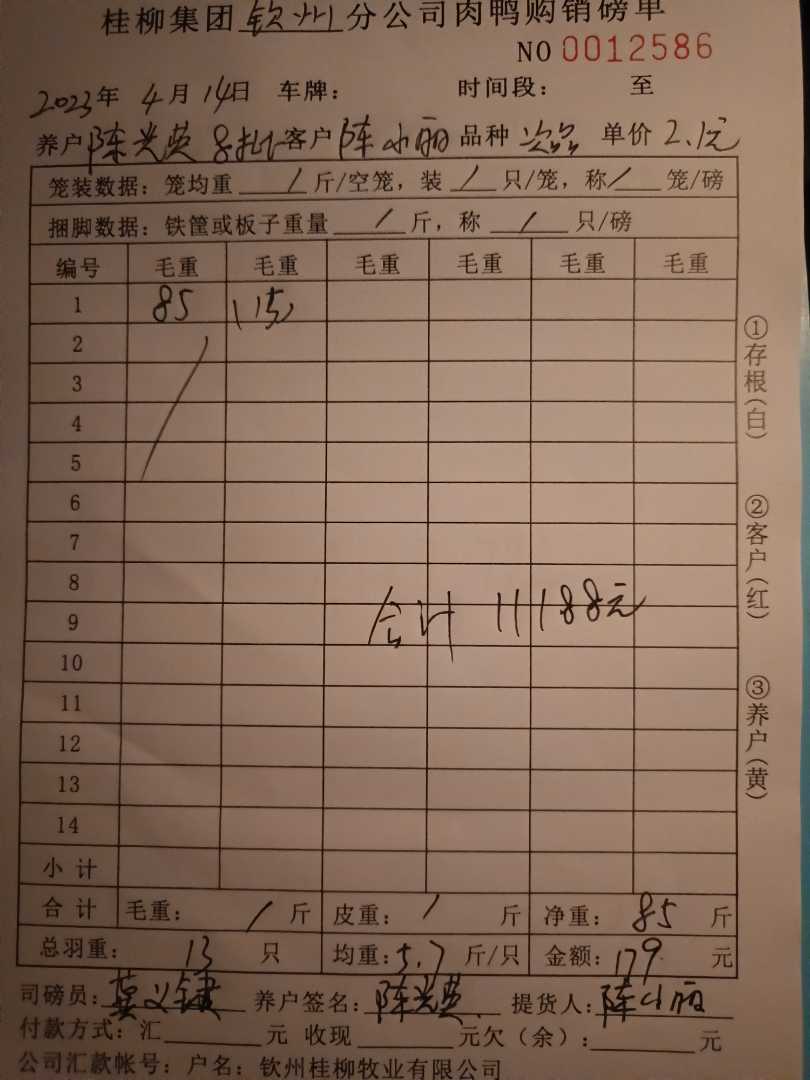 桂柳集团钦州分公司肉鸭购销磅单
NO 0012586
2023年 4月 14日 车牌: 时间段: 至
养户 陈光英 8批 客户 陈小丽 品种 次品 单价 2.1元
笼装数据: 笼均重 / 斤/空笼, 装 / 只/笼, 称 / 笼/磅
捆脚数据: 铁筐或板子重量 / 斤, 称 / 只/磅
编号 毛重 毛重 毛重 毛重 毛重 毛重
1 85
2
3
4
5
6
7
8
9
合计 11188元
10
11
12
13
14
小计
合计 毛重: / 斤 皮重: / 斤 净重: 85 斤
总羽重: 13 只 均重: 5.7 斤/只 金额: 179 元
司磅员: 莫义 养户签名: 陈光英 提货人: 陈小丽
付款方式: 汇 元 收现 元欠(余): 元
公司汇款帐号: 户名: 钦州桂柳牧业有限公司
①存根(白)
②客户(红)
③养户(黄)